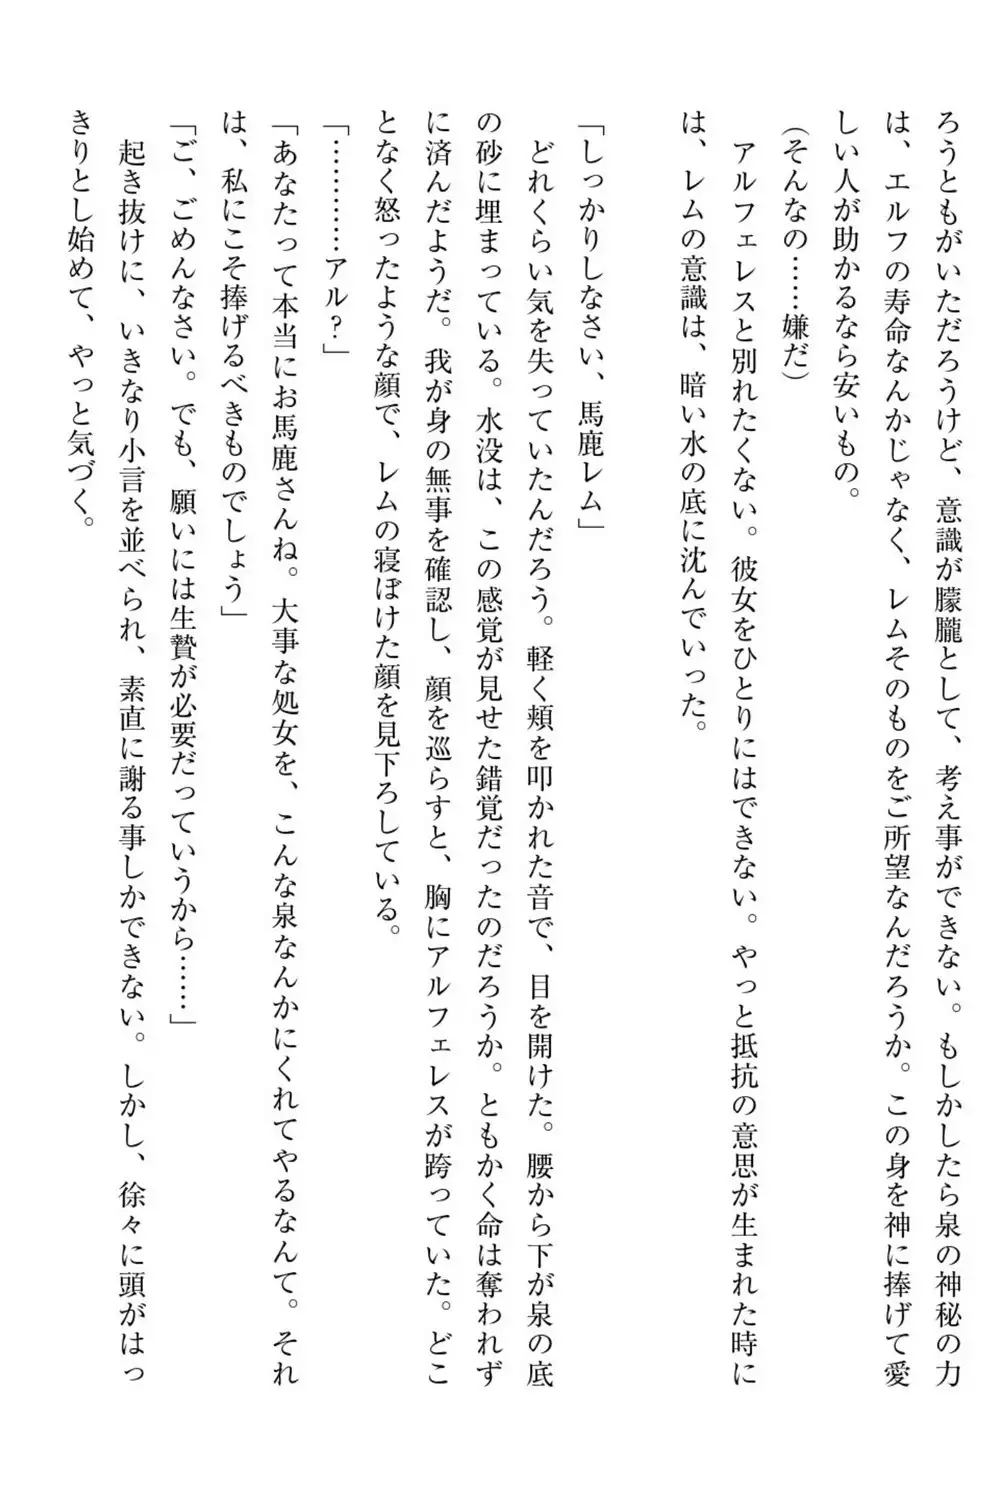 ろうともがいただろうけど、意識が朦朧として、考え事ができない。もしかしたら泉の神秘の力
は、エルフの寿命なんかじゃなく、レムそのものをご所望なんだろうか。この身を神に捧げて愛
しい人が助かるなら安いもの。
（そんなの……嫌だ）
アルフェレスと別れたくない。彼女をひとりにはできない。やっと抵抗の意思が生まれた時に
は、レムの意識は、暗い水の底に沈んでいった。
「しっかりしなさい、馬鹿レム」
どれくらい気を失っていたんだろう。軽く頬を叩かれた音で、目を開けた。腰から下が泉の底
の砂に埋まっている。水没は、この感覚が見せた錯覚だったのだろうか。ともかく命は奪われず
に済んだようだ。我が身の無事を確認し、顔を巡らすと、胸にアルフェレスが跨っていた。どこ
となく怒ったような顔で、レムの寝ぼけた顔を見下ろしている。
「…………アル？」
「あなたって本当にお馬鹿さんね。大事な処女を、こんな泉なんかにくれてやるなんて。それ
は、私にこそ捧げるべきものでしょう」
「ご、ごめんなさい。でも、願いには生贄が必要だっていうから……」
起き抜けに、いきなり小言を並べられ、素直に謝る事しかできない。しかし、徐々に頭がはっ
きりとし始めて、やっと気づく。